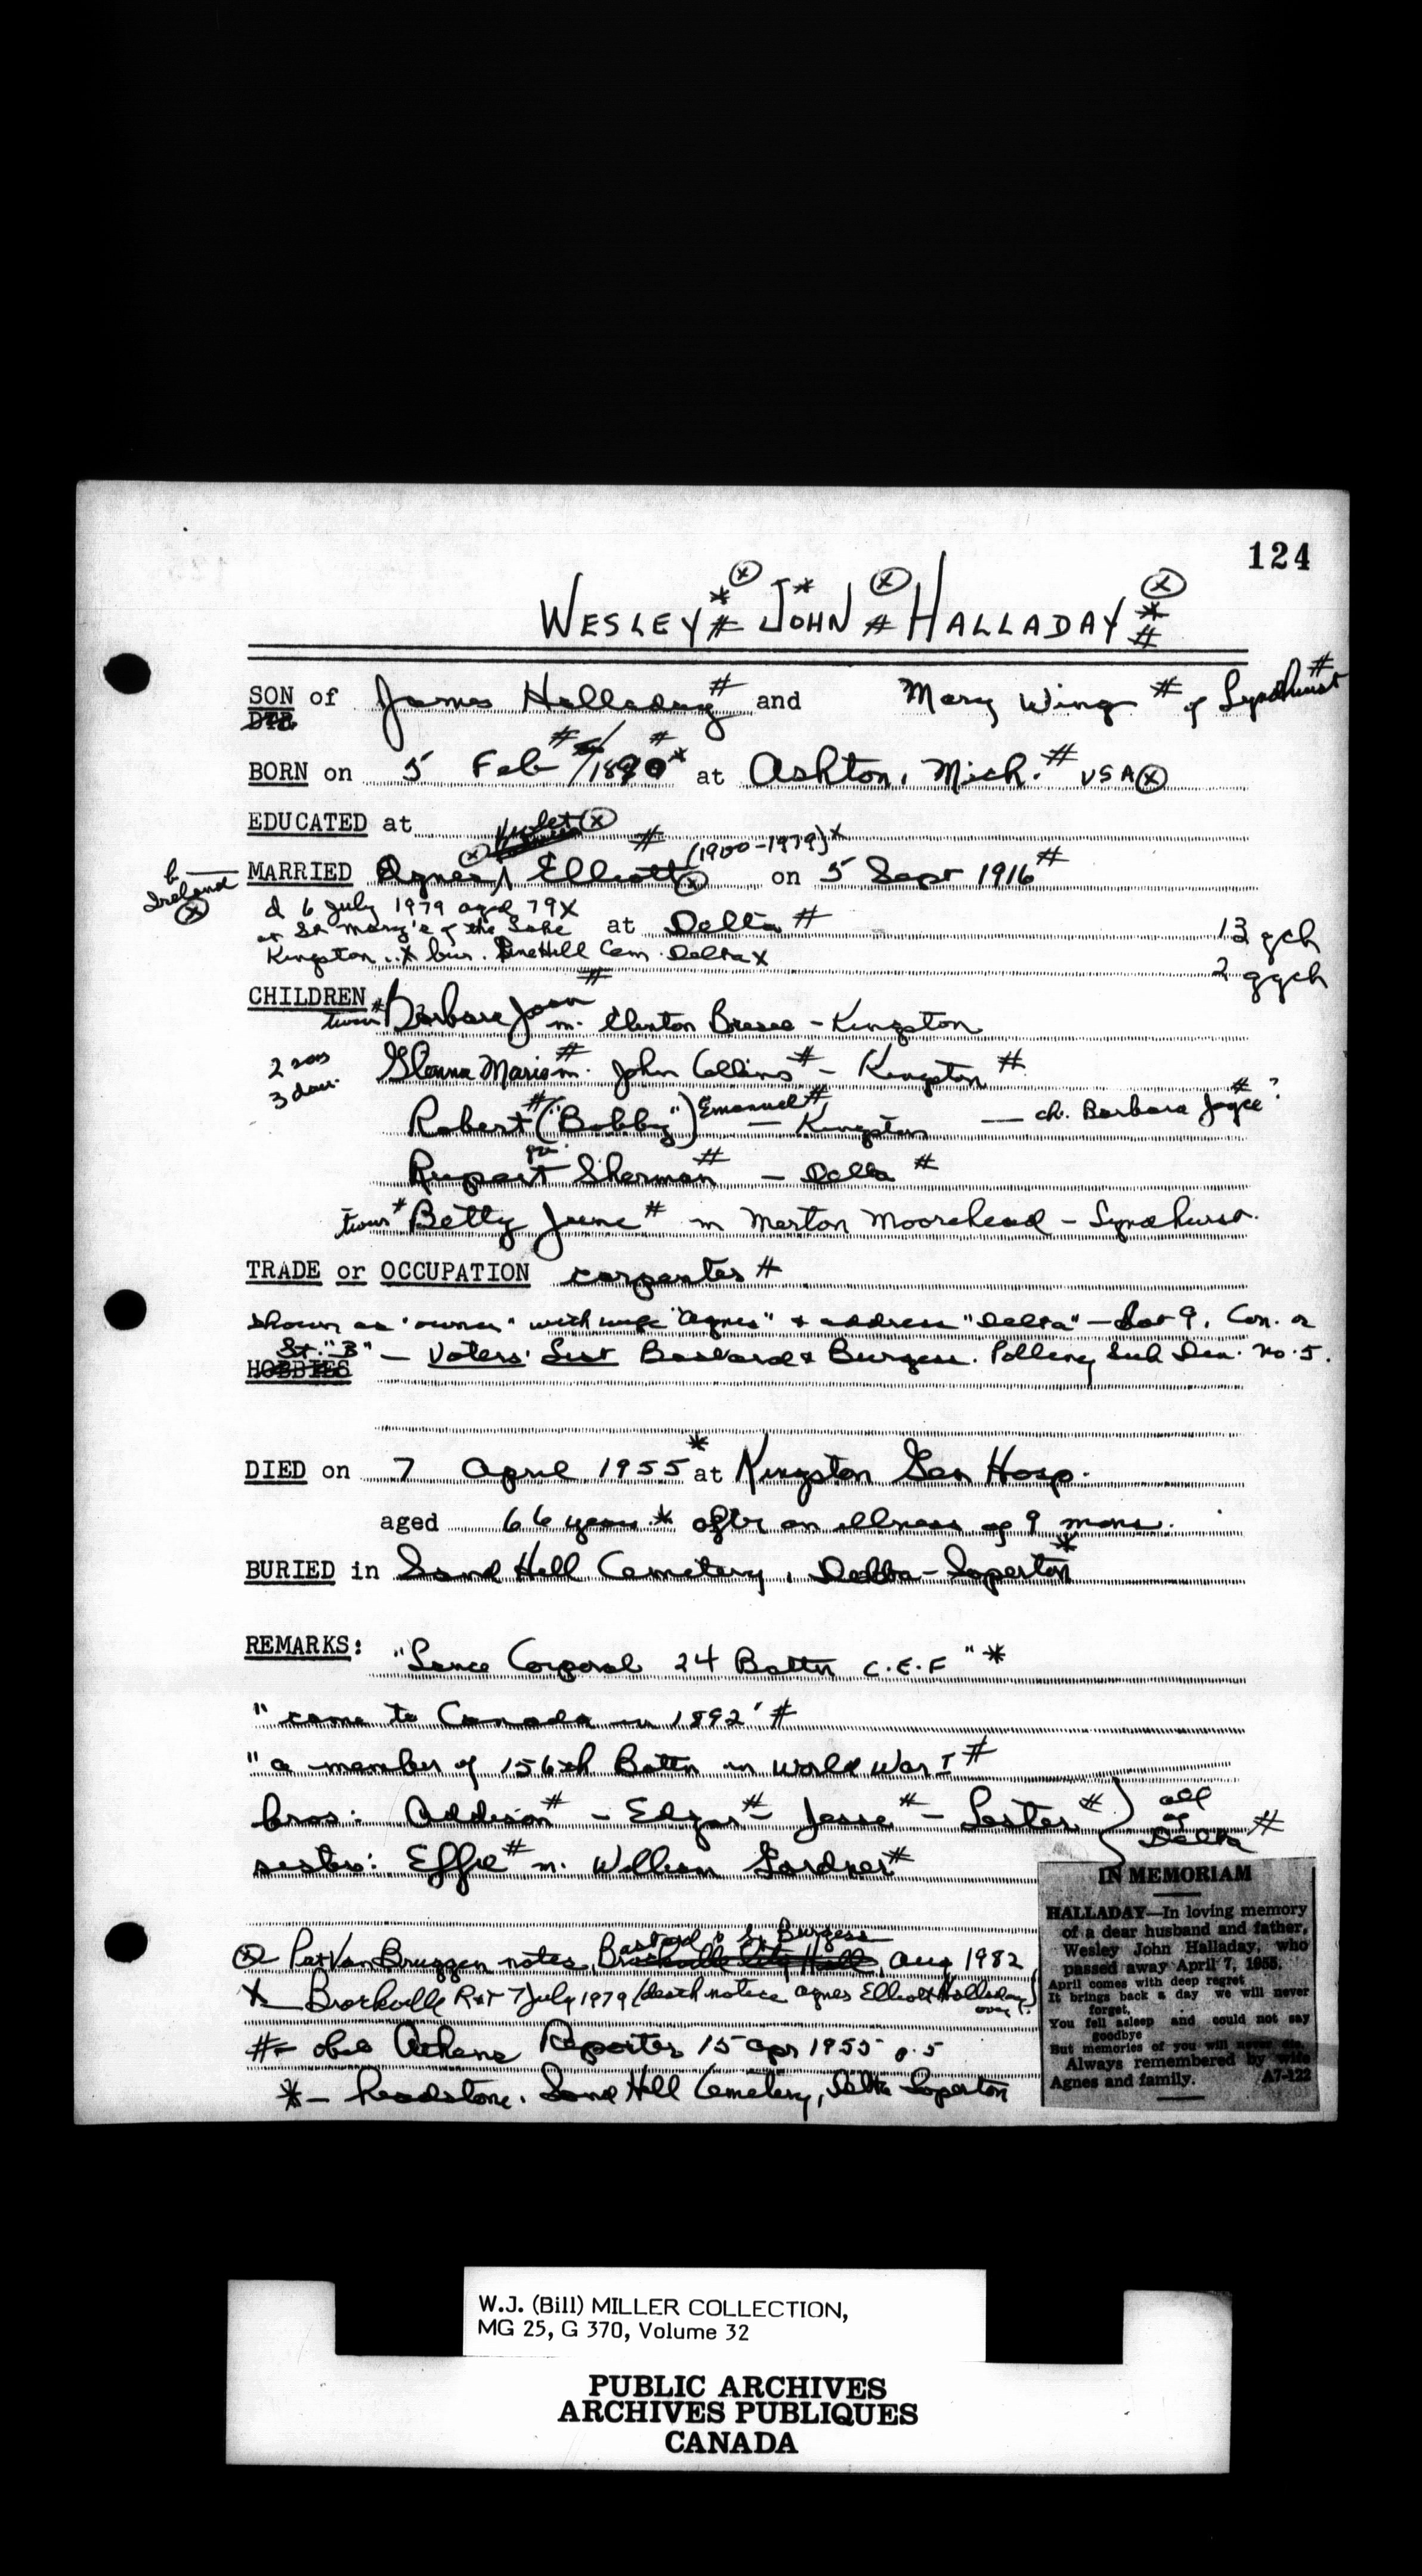 124
WESLEY * # ⓧ JOHN * # ⓧ HALLADAY ⓧ * #
SON of James Halladay # and Mary Wing # of Lyndhurst #
DTR
BORN on 5 Feb # /1890 # * at Ashton, Mich. # USA ⓧ
EDUCATED at
Violet ⓧ
b Ireland ⓧ
MARRIED Agnes ⓧ Elliott # ⓧ (1900-1979) x on 5 Sept 1916 #
d 6 July 1979 aged 79 x
at St Mary's of the Lake at Delta # 13 gch
Kingston .. x bur. Pine Hill Cem. Delta x 2 ggch
CHILDREN twins # Barbara Joan # m. Clinton Bresee - Kingston
2 sons Glenna Marie # m. John Collins # - Kingston #
3 dau.
Robert # ("Bobby") Emanuel # - Kingston — ch. Barbara Joyce # ?
Rupert Sherman # - Delta #
twins # Betty June # m Merton Moorehead - Lyndhurst.
TRADE or OCCUPATION carpenter #
shown as "owner" with wife "Agnes" & address "Delta" - Lot 9, Con. or
St. "B" - Voters' List Bastard & Burgess. Polling Sub Div. No. 5.
HOBBIES
DIED on 7 April 1955 * at Kingston Gen Hosp.
aged 66 years * after an illness of 9 mons.
BURIED in Sand Hill Cemetery, Delta-Soperton *
REMARKS: "Lance Corporal 24 Battn C.E.F" *
"came to Canada in 1892" #
"a member of 156th Battn in World War I #
bros: Addison # - Edgar # - Jesse # - Lester # } all of Delta #
sister: Effie # m. William Gardner #
ⓧ Pat Van Bruggen notes, Bastard & S. Burgess Brockville City Hall, Aug 1982
x Brockville R&T 7 July 1979 (death notice Agnes Elliott Halladay)
# - obit Athens Reporter 15 Apr 1955 p. 5
* - headstone. Sand Hill Cemetery, Delta Soperton
IN MEMORIAM
HALLADAY—In loving memory
of a dear husband and father,
Wesley John Halladay, who
passed away April 7, 1955.
April comes with deep regret
It brings back a day we will never
forget,
You fell asleep and could not say
goodbye
But memories of you will never die.
Always remembered by wife
Agnes and family. A7-122
W.J. (Bill) MILLER COLLECTION,
MG 25, G 370, Volume 32
PUBLIC ARCHIVES
ARCHIVES PUBLIQUES
CANADA